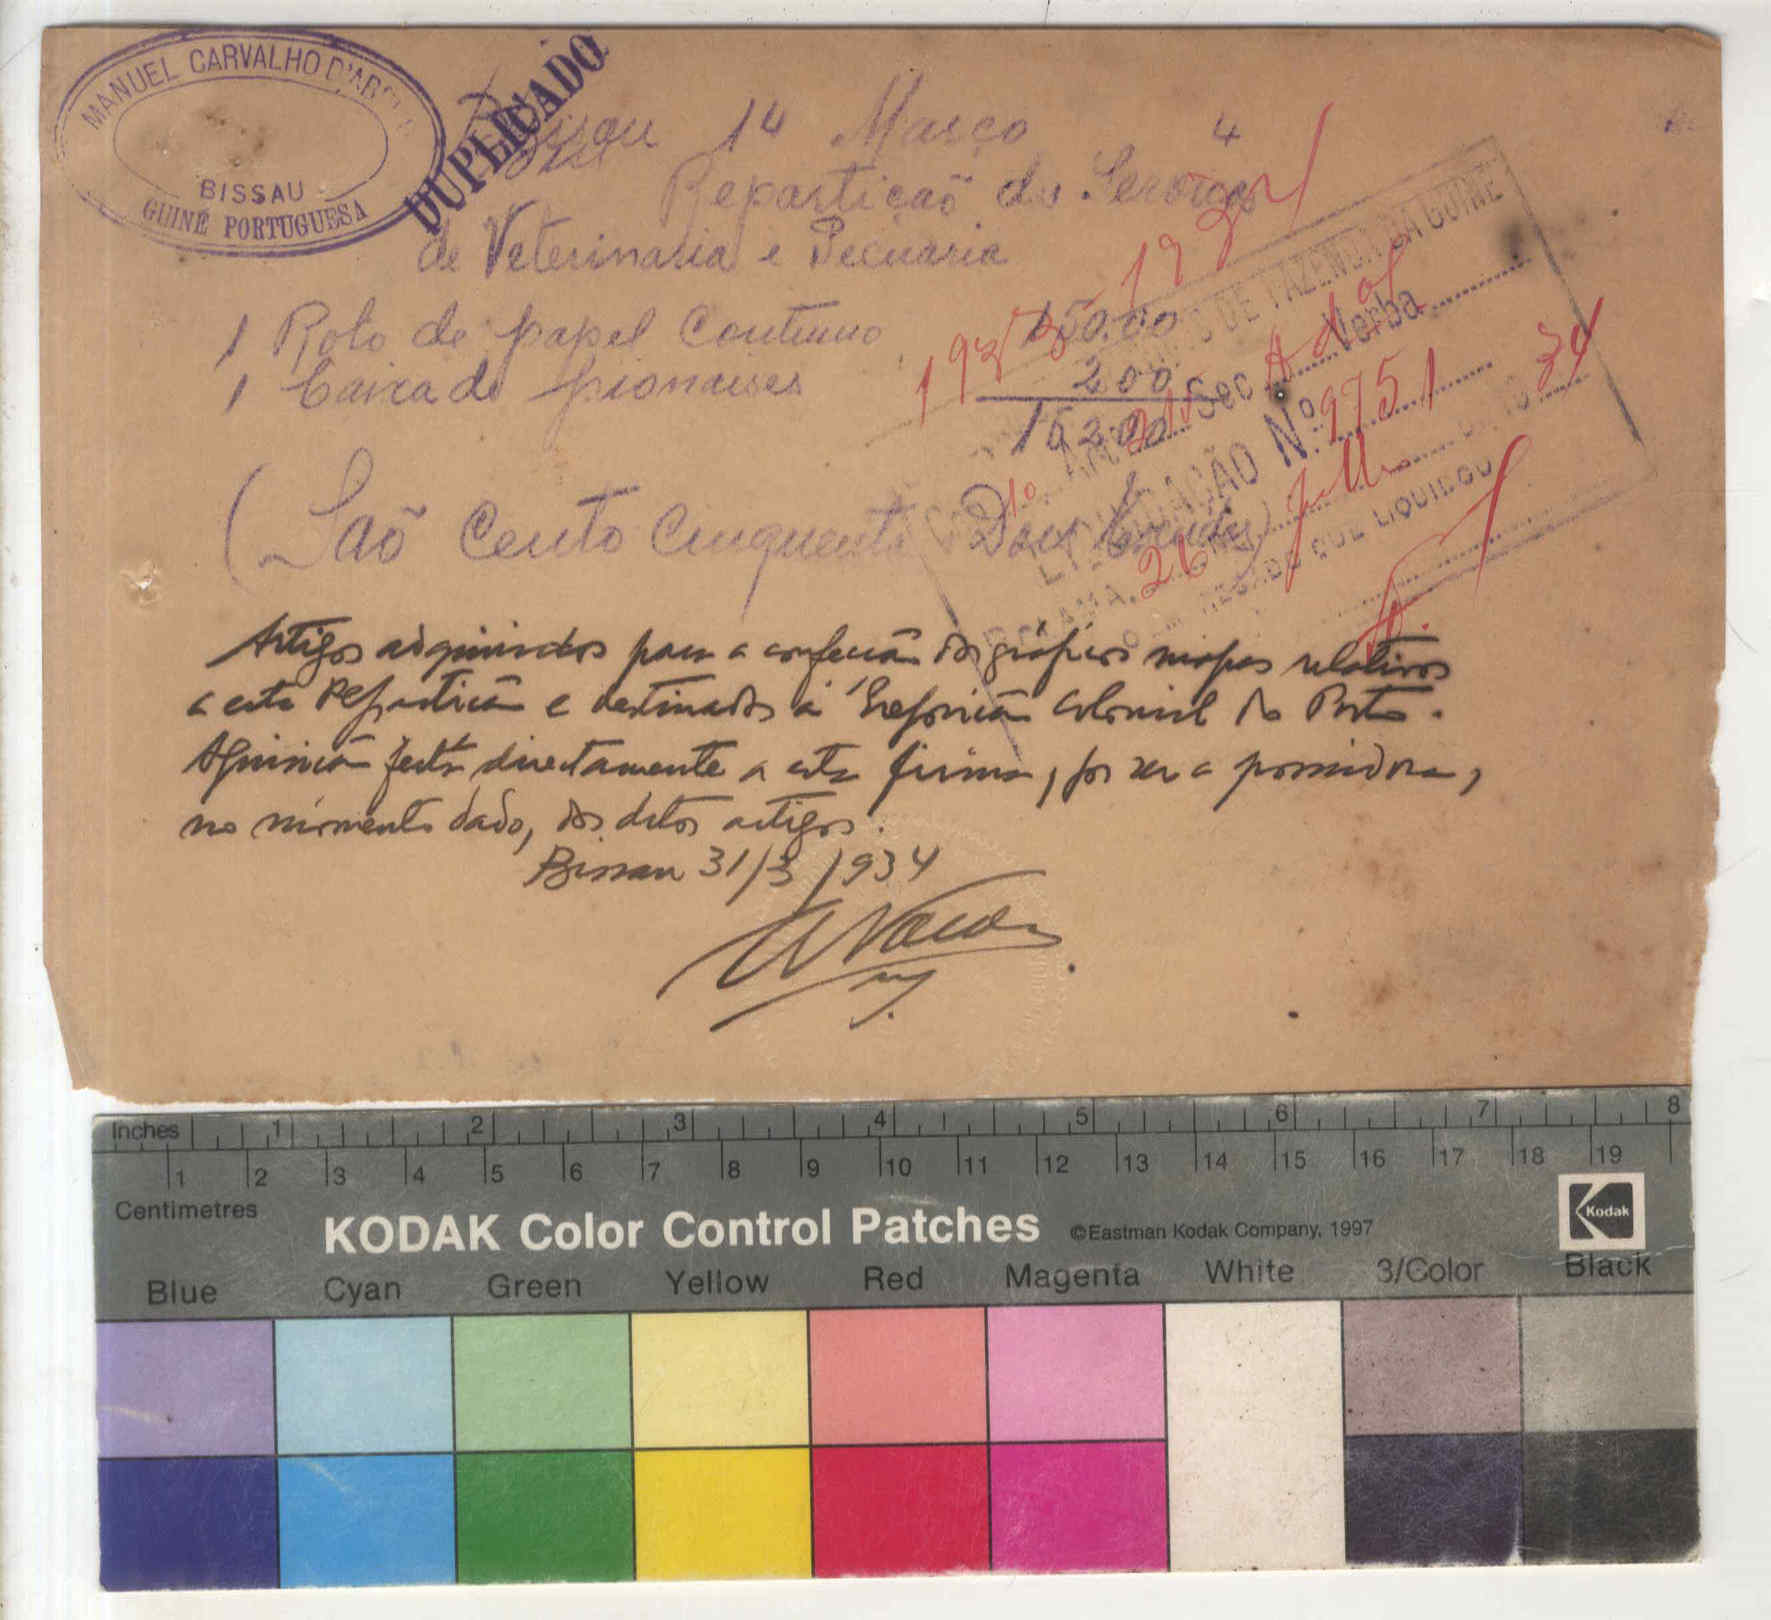 MANUEL CARVALHO D'
BISSAU
GUINÉ PORTUGUESA
DUPLICADO
Bissau 14 Março 4
Repartição de Serviços
de Veterinaria e Pecuaria
1 Rolo de papel Continuo 150.00
1 Caixa de pionaises 200
15200
(Saõ Cento Cinquenta Dois Escudos)
DE FAZENDA DA GUINÉ
1933 1934
Art. Sec Verba
LIQUIDAÇÃO N.º 9751
26 Julho 34
QUE LIQUIDOU
Artigos adquiridos para a confecção dos gráficos mapas relativos
a esta Repartição e destinados à Exposição Colonial do Porto.
Aquisição feita directamente a esta firma, por ser a possuidora,
no momento dado, dos ditos artigos.
Bissau 31/3/934
Inches 1 2 3 4 5 6 7 8
1 2 3 4 5 6 7 8 9 10 11 12 13 14 15 16 17 18 19
Centimetres
KODAK Color Control Patches ©Eastman Kodak Company, 1997 Kodak
Blue Cyan Green Yellow Red Magenta White 3/Color Black